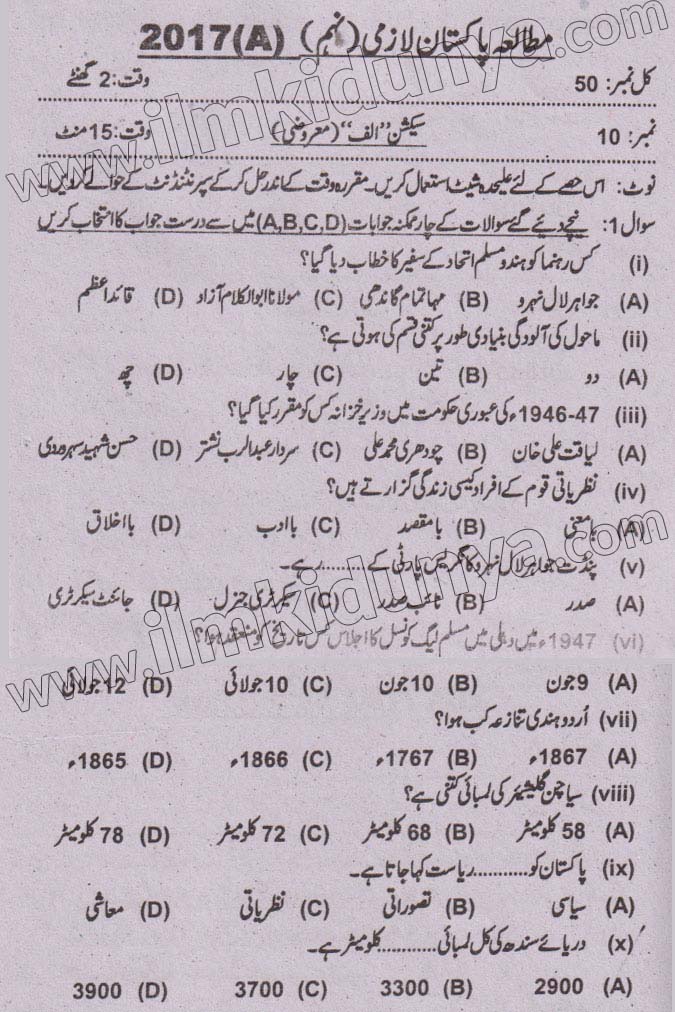 مطالعہ پاکستان لازمی (نہم) 2017(A)
کل نمبر: 50 وقت: 2 گھنٹے
نمبر: 10 سیکشن ”الف“ (معروضی) وقت: 15 منٹ
نوٹ: اس حصے کے لئے علیحدہ شیٹ استعمال کریں۔ مقررہ وقت کے اندر حل کر کے سپرنٹنڈنٹ کے حوالے کر دیں۔
سوال 1: نیچے دئیے گئے سوالات کے چار ممکنہ جوابات (A,B,C,D) میں سے درست جواب کا انتخاب کریں
(i) کس رہنما کو ہندو مسلم اتحاد کے سفیر کا خطاب دیا گیا؟
(A) جواہر لال نہرو (B) مہاتما گاندھی (C) مولانا ابوالکلام آزاد (D) قائداعظم
(ii) ماحول کی آلودگی بنیادی طور پر کتنی قسم کی ہوتی ہے؟
(A) دو (B) تین (C) چار (D) چھ
(iii) 1946-47ء کی عبوری حکومت میں وزیر خزانہ کس کو مقرر کیا گیا؟
(A) لیاقت علی خان (B) چودھری محمد علی (C) سردار عبدالرب نشتر (D) حسن شہید سہروردی
(iv) نظریاتی قوم کے افراد کیسی زندگی گزارتے ہیں؟
(A) بامعنی (B) بامقصد (C) باادب (D) بااخلاق
(v) پنڈت جواہر لال نہرو کانگریس پارٹی کے ............ رہے۔
(A) صدر (B) نائب صدر (C) سیکرٹری جنرل (D) جائنٹ سیکرٹری
(vi) 1947ء میں دہلی میں مسلم لیگ کونسل کا اجلاس کس تاریخ کو منعقد ہوا؟
(A) 9 جون (B) 10 جون (C) 10 جولائی (D) 12 جولائی
(vii) اُردو ہندی تنازعہ کب ہوا؟
(A) 1867ء (B) 1767ء (C) 1866ء (D) 1865ء
(viii) سیاچن گلیشیئر کی لمبائی کتنی ہے؟
(A) 58 کلومیٹر (B) 68 کلومیٹر (C) 72 کلومیٹر (D) 78 کلومیٹر
(ix) پاکستان کو ............ ریاست کہا جاتا ہے۔
(A) سیاسی (B) تصوراتی (C) نظریاتی (D) معاشی
(x) دریائے سندھ کی کل لمبائی ............ کلومیٹر ہے۔
(A) 2900 (B) 3300 (C) 3700 (D) 3900
www.ilmkidunya.com
www.ilmkidunya.com